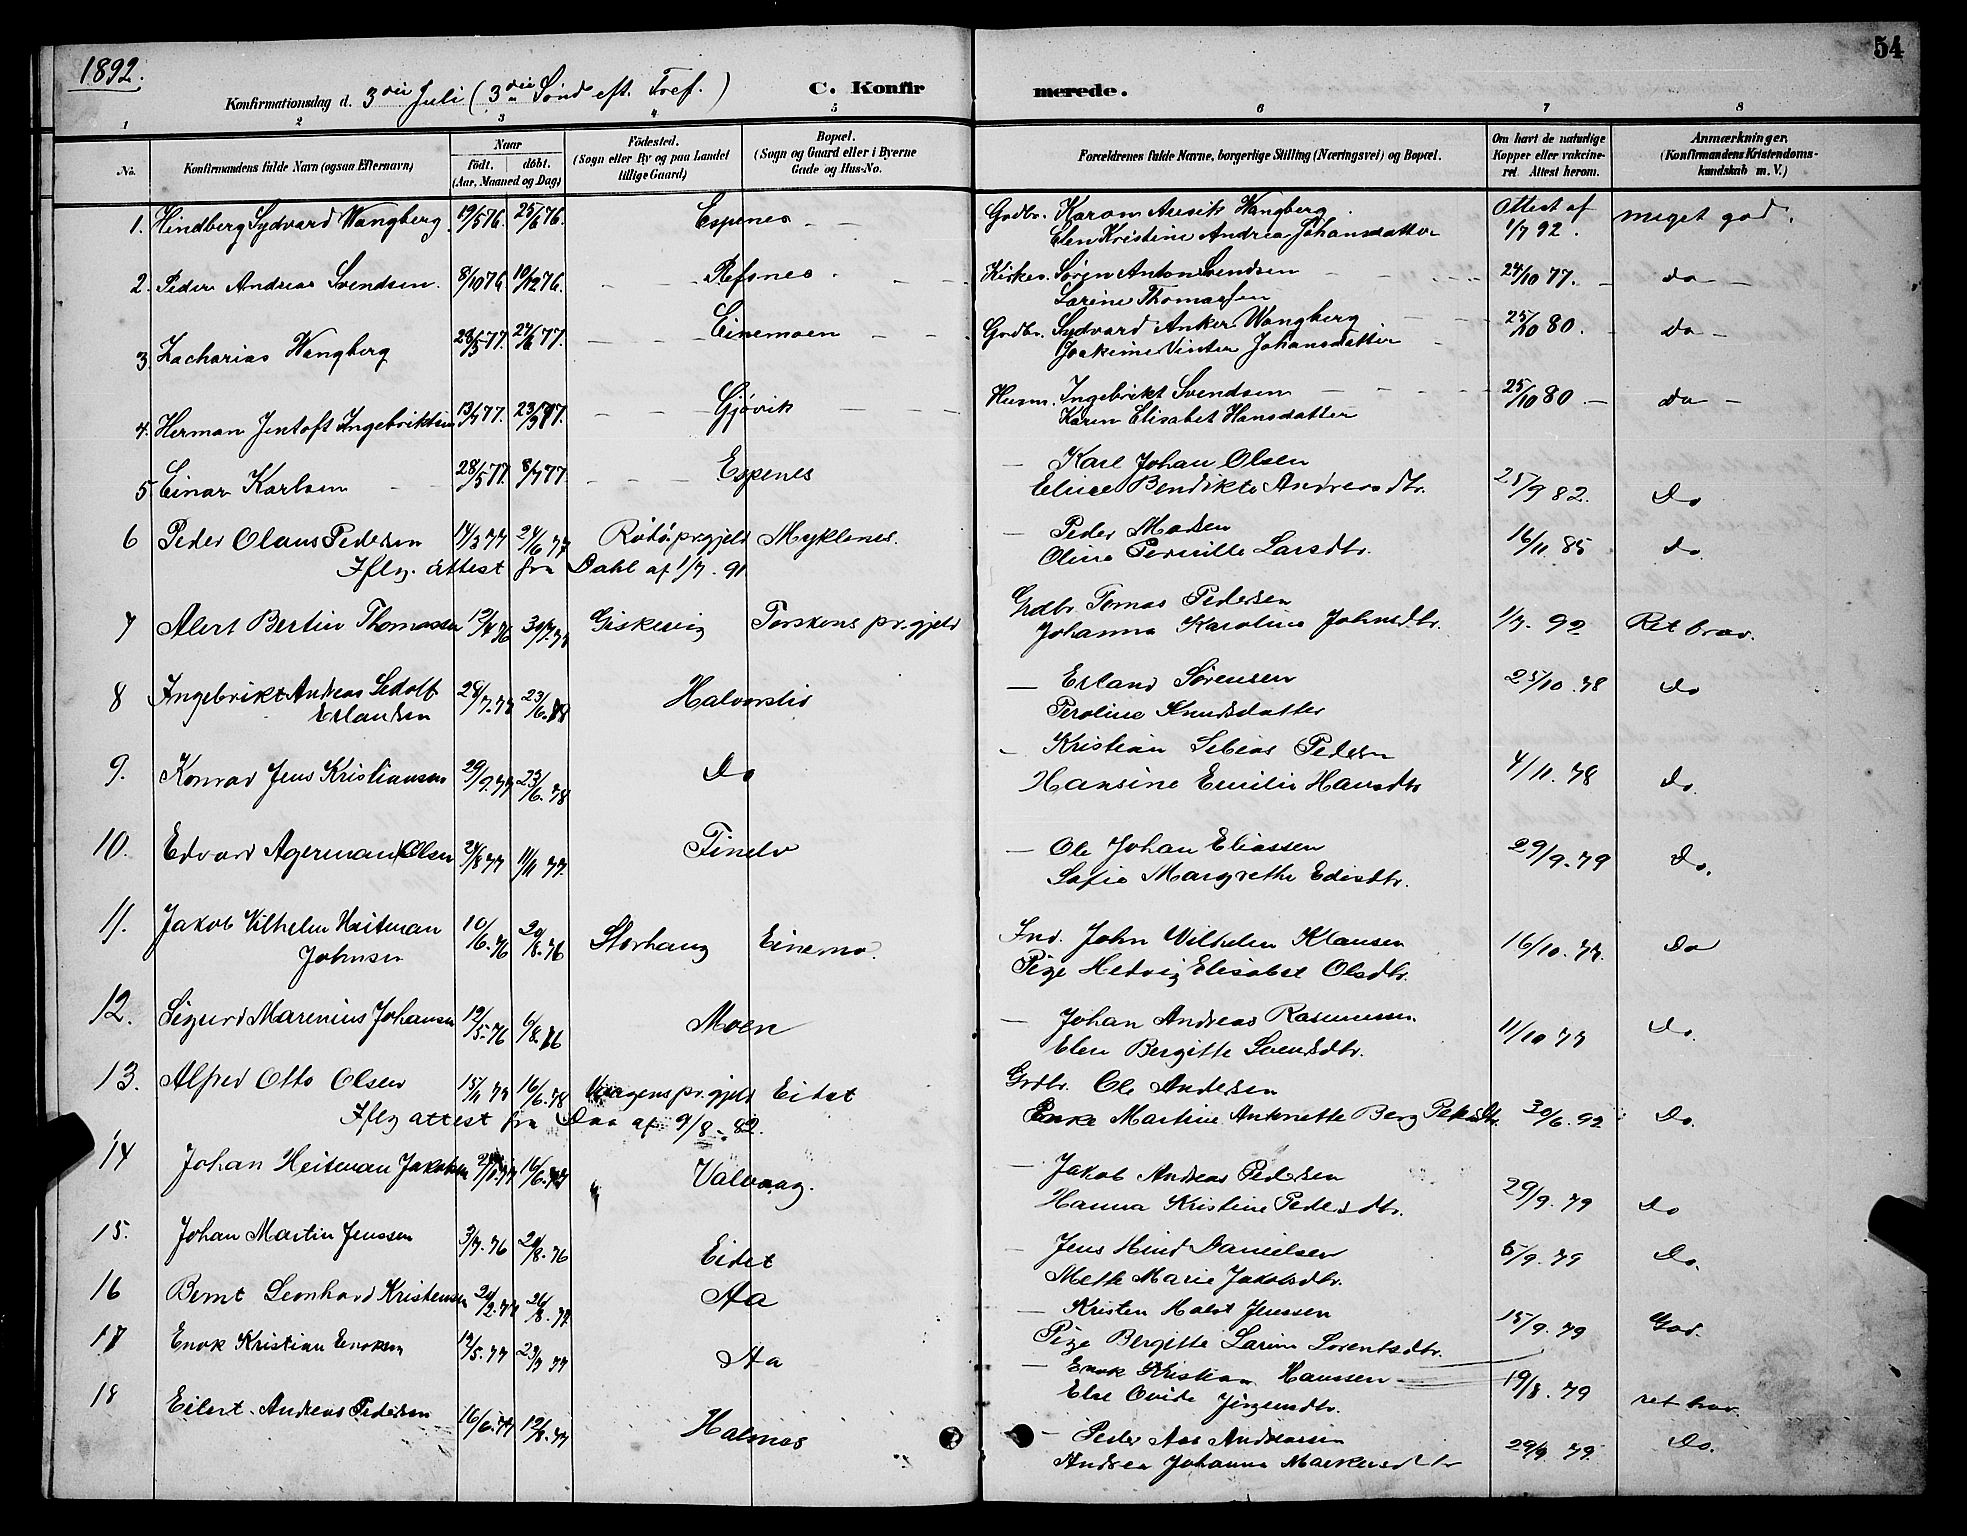 1892.
54
Konfirmationsdag d. 3die Juli (3die Sönd eft. Tref.)
C. Konfirmerede.
1 2 3 4 5 6 7 8
No.
Konfirmandens fulde Navn (ogsaa Efternavn)
Naar
födt. döbt.
(Aar, Maaned og Dag)
Födested.
(Sogn eller By og paa Landet
tillige Gaard)
Bopæl.
(Sogn og Gaard eller i Byerne
Gade og Hus-No.
Forældrenes fulde Navne, borgerlige Stilling (Næringsvei) og Bopæl.
Om havt de naturlige
Kopper eller vakcine-
ret. Attest herom.
Anmærkninger.
(Konfirmandens Kristendoms-
kundskab m. V.)
1. Hindberg Sydvard Wangberg 19/5 76. 25/6 76. Espenes Grdbr. Wangberg Attest af meget god.
Elen Kristine Andrea Johansdatter 1/7 92.
2. Peder Andreas Svendsen. 8/10 76 10/12 76. Refsnes Sören Anton Svendsen 24/10 77. do
Larine Thomassen
3. Zacharias Wangberg 28/3 77. 24/6 77. Einemoen Grdbr. Sydvard Anker Wangberg 25/10 80. do
Joakime Vinter Johansdatter
4. Herman Jentoft Ingebriktsen 77. 77. Gjövik Husm. Ingebrikt Svendsen 25/10 80 do
Karen Elisabet Hansdatter
5 Einar Karlsen 28/5 77. 8/7 77. Espenes Karl Johan Olsen
Bendikte Andreasdtr. 25/9 82. Do
6 Peder Olaus Pedersen 14/3 77 24/6 77 Rödö prgjeld Myklenes. Peder Madsen 16/11 85 Do.
Iflg. attest fra Dahl af 1/7. 91 Oline Pernille Larsdtr.
7 Alert Bertin Thomassen 12/4 76 Giskevig Torskens pr.gjeld Grdbr Tomas Pedersen
Johanna Karoline Johnsdtr. 1/7. 92 Ret brav.
8 Ingebrikt Andreas Sedolf 28/7. 77 23/6. 78 Halvorsli Erland Sörensen 25/10. 78 Do
Erlandsen Peroline Knudsdatter
9. Konrad Jens Kristiansen 29/9. 77 23/6. 78 Do Kristian Sebias Pedersen
Hansine Emilie Hansdtr 4/11. 78 Do.
10. Edvard Agerman Olsen 77 11/11 77. Finelv Ole Johan Eliassen 29/9. 79 Do.
Sofie Margrethe Edisdtr.
11. Jakob Vilhelm Heitman 10/6. 76 20/8. 76 Storhaug Einemo. Ind. John Wilhelm Klausen 16/10. 77. Do
Johnsen Pige Hedvig Elisabet Olsdtr.
12. Sigurd Marenius Johansen 19/5. 76 6/8. 76 Moen Johan Andreas Rasmussen 11/10 77 Do.
Elen Bergitte Svendsdtr.
13. Alfred Otto Olsen 15/11 77 16/6. 78 pr.gjeld Eidet Grdbr. Ole Andersen
Iflg attest fra Daa af 9/8 - 82. Martine Antonette Berg 30/6. 92 Do.
14 Johan Heitman Jakobsen 77 16/6. Valvaag. Jakob Andreas Pedersen
Hanna Kristine Pedersdtr. 29/9. 79 Do
15. Johan Martin Jenssen 3/7. 76 20/8. 76 Eidet Jens Hind Danielsen 5/9. 79 Do.
Mette Marie Jakobsdtr.
16 Bernt Leonhard Kristensen 24/2. 77 26/8. 77 Aa Kristen Holst Jenssen 15/9. 79 God.
Pige Bergitte Larine Lorentsdtr.
17 Enok Kristian Enoksen 12/5. 77 77 Aa Enok Kristian Hanssen 19/8. 79 ret brav.
Else Ovide Jörgensdtr.
18 Eilert Andreas Pedersen 16/6. 77 12/8. 77 Halsnæs Peder Aas Andreassen 29/9. 79. Do.
Andrea Johanna